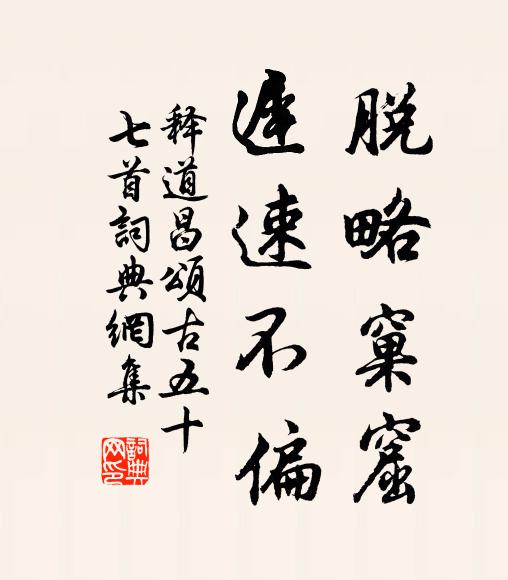 脱略窠窟
遲速不偏
释道昌頌古五十
七首詞典網集
詞典网印